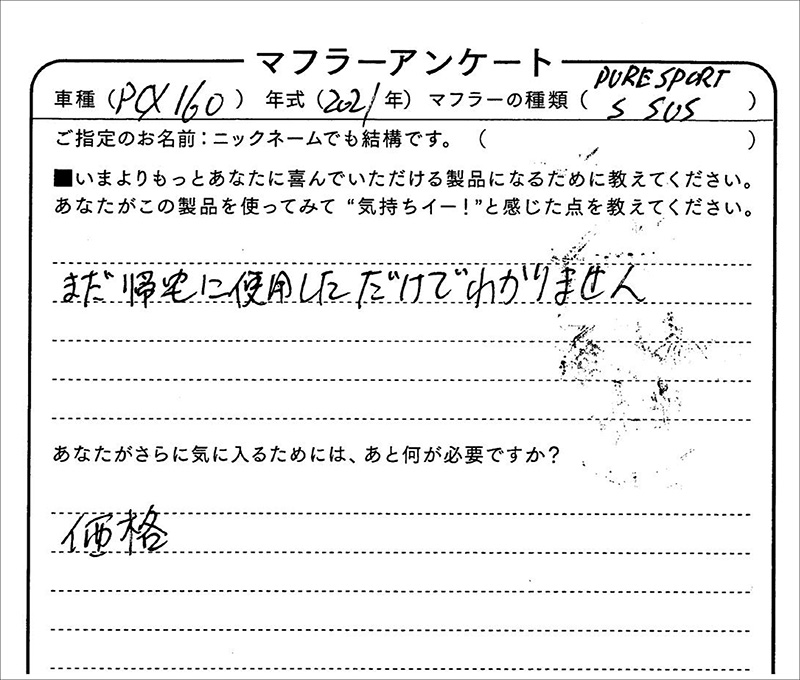 マフラーアンケート
車種（PCX160） 年式（2021年） マフラーの種類（PURE SPORT
S SUS）
ご指定のお名前：ニックネームでも結構です。（ ）
■いまよりもっとあなたに喜んでいただける製品になるために教えてください。
あなたがこの製品を使ってみて“気持ちイー！”と感じた点を教えてください。
まだ帰宅に使用しただけでわかりません
あなたがさらに気に入るためには、あと何が必要ですか？
価格